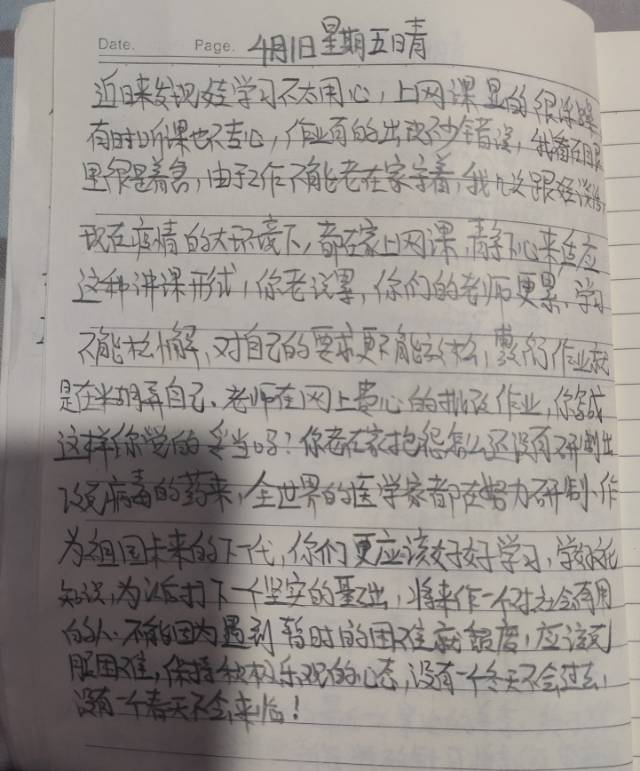 Date. Page. 4月1日星期五日晴
近日来发现娃学习不太用心,上网课显的很浮躁
有时听课也不专心,作业有的出现不少错误,我看在眼
里很是着急,由于工作不能老在家守着,我几次跟经谈话,
现在疫情的大环境下,都在家上网课,静下心来适应
这种讲课形式,你老说累,你们的老师更累,学习
不能松懈,对自己的要求更不能放松,敷衍作业就
是在糊弄自己、老师在网上费心的批改作业,你写成
这样你觉的妥当吗?你老在家抱怨怎么还没有研制出
谈病毒的药来,全世界的医学家都在努力研制、作
为祖国未来的下一代,你们更应该好好学习,学好文化
知识,为以后打下一个坚实的基础,将来作一个对社会有用
的人、不能因为遇到暂时的困难就颓废,应该克
服困难,保持积极乐观的心态,没有一个冬天不会过去,
没有一个春天不会来临!